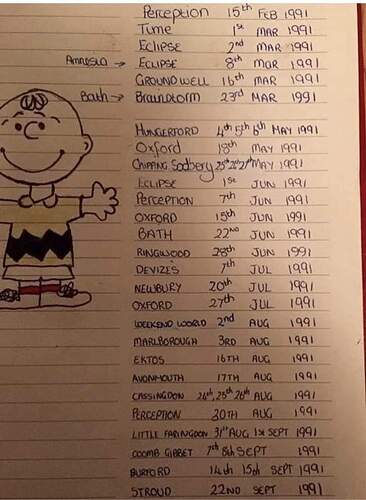 Perception 15th FEB 1991
Time 1st MAR 1991
Eclipse 2nd MAR 1991
Amnesia → Eclipse 8th MAR 1991
GROUNDWELL 16th MAR 1991
Bath → Brainstorm 23rd MAR 1991
HUNGERFORD 4th 5th 6th MAY 1991
Oxford 18th MAY 1991
Chipping Sodbery 25th 26th 27th MAY 1991
Eclipse 1st JUN 1991
PERCEPTION 7th JUN 1991
OXFORD 15th JUN 1991
BATH 22ND JUN 1991
RINGWOOD 28th JUN 1991
DEVIZES 7th JUL 1991
NEWBURY 20th JUL 1991
OXFORD 27th JUL 1991
WEEKEND WORLD 2nd AUG 1991
MARLBOROUGH 3RD AUG 1991
EKTOS 16TH AUG 1991
AVONMOUTH 17TH AUG 1991
CASSINGDON 24th, 25th 26th AUG 1991
PERCEPTION 30TH AUG 1991
LITTLE FARINGDON 31st AUG 1st SEPT 1991
COOMB GIBBET 7th 8th SEPT 1991
BURFORD 14th 15th SEPT 1991
STROUD 22ND SEPT 1991